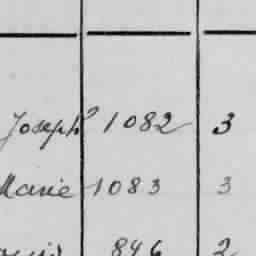 Joseph 1082 3
Marie 1083 3
846 2